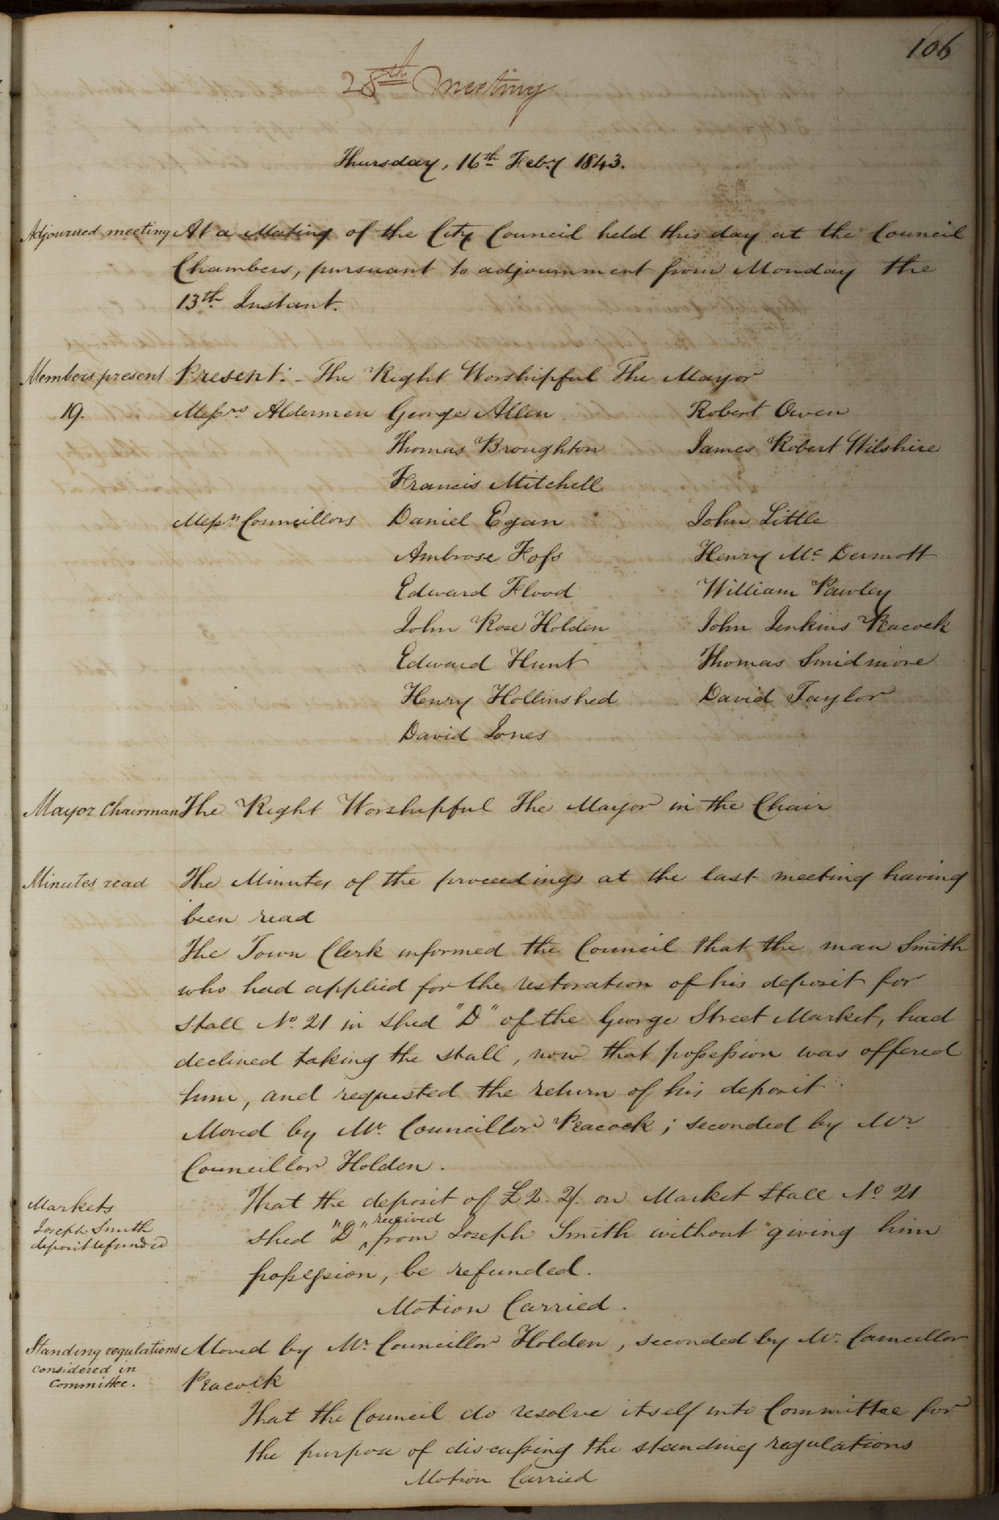 106
28th Meeting
Thursday, 16th Feby 1843.
Adjourned meeting At a Meeting of the City Council held this day at the Council
Chambers, pursuant to adjournment from Monday the
13th Instant.
Members present Present:- The Right Worshipful The Mayor
19. Messrs Aldermen George Allen Robert Owen
Thomas Broughton James Robert Wilshire
Francis Mitchell
Messrs Councillors Daniel Egan John Little
Ambrose Foss Henry Mc Dermott
Edward Flood William Pawley
John Rose Holden John Jenkins Peacock
Edward Hunt Thomas Smidmore
Henry Hollinshed David Taylor
David Jones
Mayor Chairman The Right Worshipful The Mayor in the Chair
Minutes read The Minutes of the proceedings at the last meeting having
been read
The Town Clerk informed the Council that the man Smith
who had applied for the restoration of his deposit for
Stall No 21 in shed "D" of the George Street Market, had
declined taking the stall, now that possession was offered
him, and requested the return of his deposit
Moved by Mr. Councillor Peacock; seconded by Mr
Councillor Holden.
Markets That the deposit of £2. 2/. on Market Stall No 21
Joseph Smith deposit refunded shed "D" received from Joseph Smith without giving him
possession, be refunded.
Motion Carried.
Standing regulations Moved by Mr Councillor Holden, seconded by Mr. Councillor
considered in Committee. Peacock
That the Council do resolve itself into Committee for
the purpose of discussing the standing regulations
Motion Carried